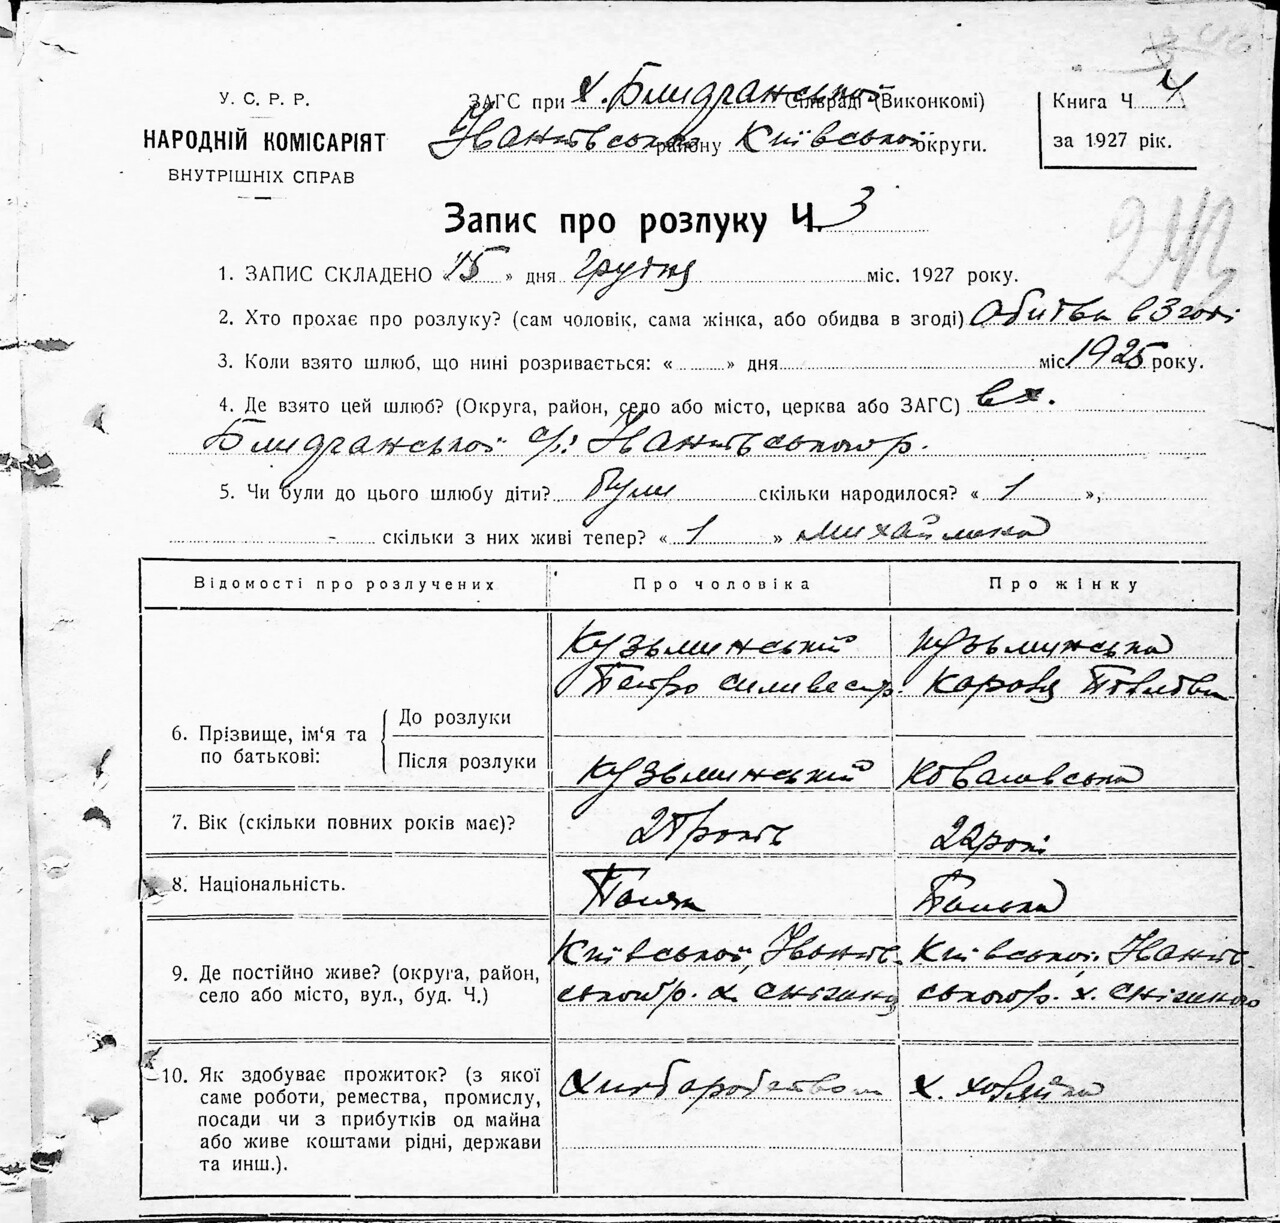 У. С. Р. Р.
НАРОДНІЙ КОМІСАРІЯТ
ВНУТРІШНІХ СПРАВ
ЗАГС при х. Сільраді (Виконкомі)
району Київської округи.
Книга Ч 4
за 1927 рік.
Запис про розлуку Ч. 3
1. ЗАПИС СКЛАДЕНО « 15 » дня Грудня міс. 1927 року.
2. Хто прохає про розлуку? (сам чоловік, сама жінка, або обидва в згоді) Обитва в згоді
3. Коли взято шлюб, що нині розривається: « » дня міс 1925 року.
4. Де взято цей шлюб? (Округа, район, село або місто, церква або ЗАГС) в х.
5. Чи були до цього шлюбу діти? Були скільки народилося? « 1 »,
- скільки з них живі тепер? « 1 »
Відомості про розлучених
Про чоловіка
Про жінку
6. Прізвище, ім'я та по батькові:
До розлуки
Кузьминський
Петро Силивестр.
Кузьминська
Після розлуки
Кузьминський
Ковалевська
7. Вік (скільки повних років має)?
22 роки
8. Національність.
Поляк
Полька
9. Де постійно живе? (округа, район,
село або місто, вул., буд. Ч.)
Київської,
Київської.
10. Як здобуває прожиток? (з якої
саме роботи, ремества, промислу,
посади чи з прибутків од майна
або живе коштами рідні, держави
та инш.).
Хліборобством
х. хозяйка